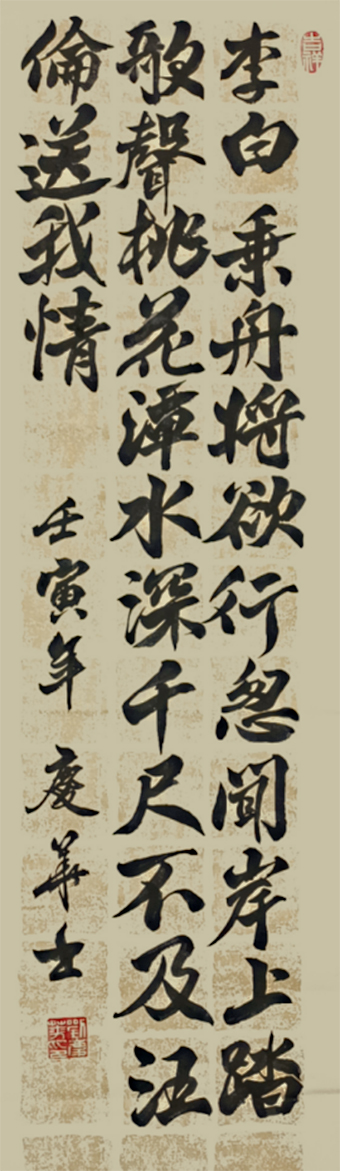 吉祥
李白 乘舟將欲行忽聞岸上踏
歌聲桃花潭水深千尺不及汪
倫送我情 壬寅年 慶華士